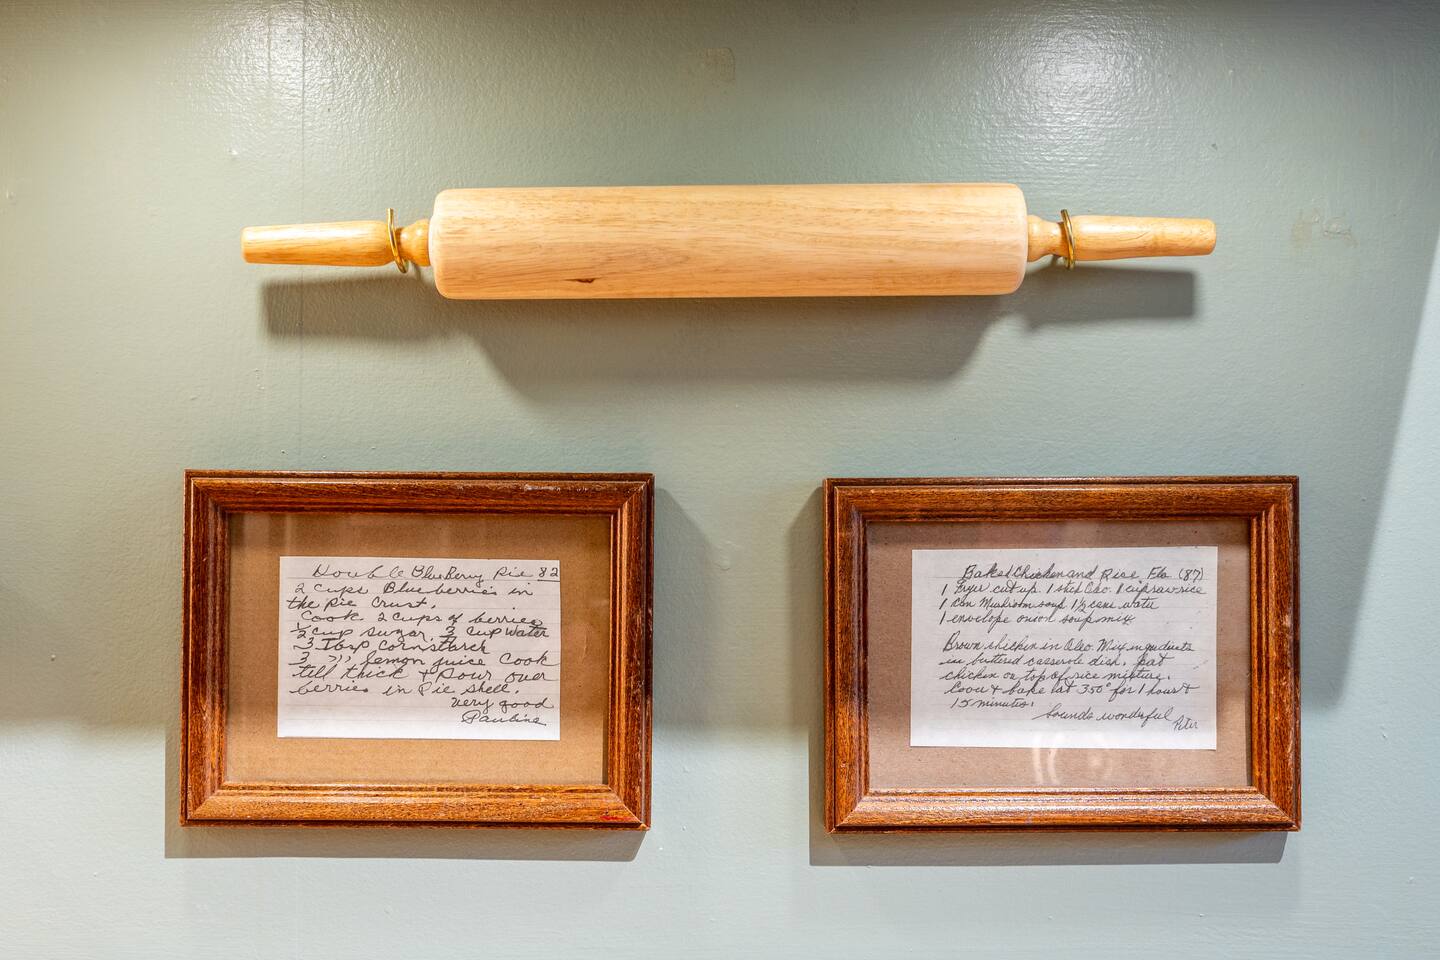 Double BlueBerry Pie 82
2 cups Blueberries in
the pie Crust.
Cook 2 cups of berries
1/2 cup sugar, 2/3 cup water
3 Tbsp Cornstarch
3 " lemon juice Cook
till thick + Pour over
berries in Pie shell.
Very good
Pauline
Baked Chicken and Rice Flo (87)
1 Fryer cut up. 1 stick Oleo. 1 cup raw rice
1 can Mushroom soup 1 1/2 cans water
1 envelope onion soup mix
Brown chicken in Oleo. Mix ingredients
in buttered casserole dish. Put
chicken on top of rice mixture.
Cover + bake at 350° for 1 hour +
15 minutes.
Sounds wonderful
Peter